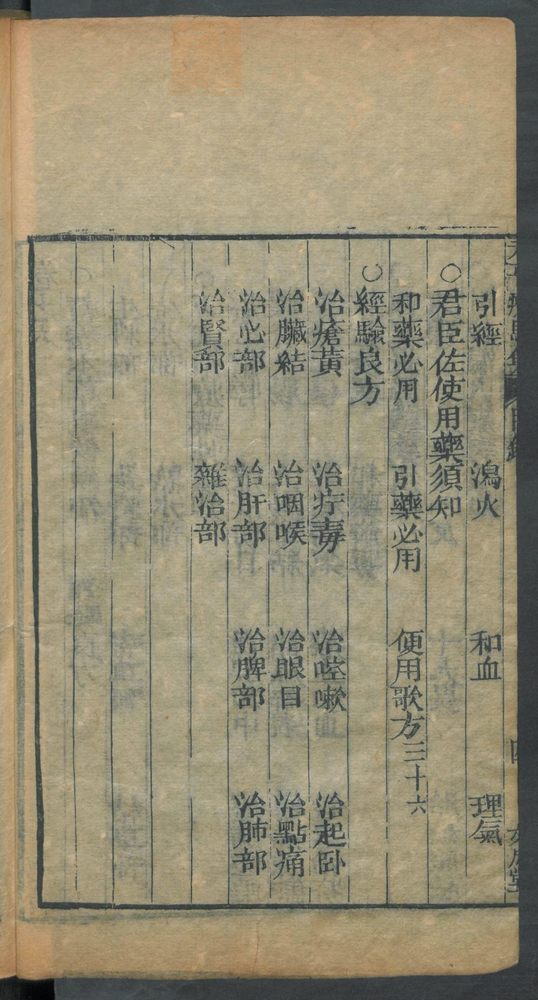 引經　瀉火　和血　理氣
○君臣佐使用藥須知
和藥必用　引藥必用　便用歌方三十六
○經驗良方
治瘡黃　治疔毒　治啌嗽　治起卧
治臟結　治咽喉　治眼目　治點痛
治心部　治肝部　治脾部　治肺部
治腎部　雜治部